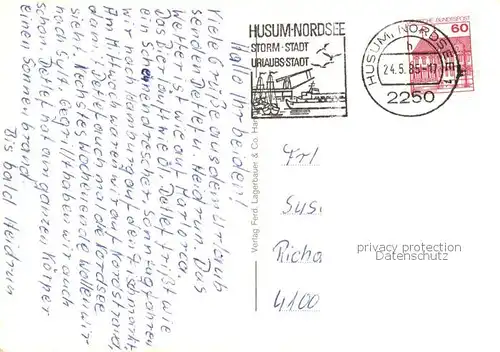 Hallo Ihr beiden!
Viele Grüße aus dem Urlaub
senden Detlef u. Heidrun. Das
Wetter ist wie auf Mallorca.
Das Bier läuft wie Öl. Detlef frißt wie
ein Scheunendrescher. Sonntag fahren
wir nach Hamburg auf den Fischmarkt
Am Mittwoch waren wir auf Nordstrand,
dam. Detlef auch mal die Nordsee
sieht. Nächstes Wochenende wollen wir
noch Sylt. Gegrillt haben wir auch
schon. Detlef hat am ganzen Körper
einen Sonnenbrand.
Bis bald Heidrun
Verlag Ferd. Lagerbauer & Co. Ham
HUSUM·NORDSEE
STORM·STADT
URLAUBSSTADT
HUSUM, NORDSEE
24.5.85-17
2250
DEUTSCHE BUNDESPOST
60
Frl
Sus.
Richa
4100
privacy protection
Datenschutz